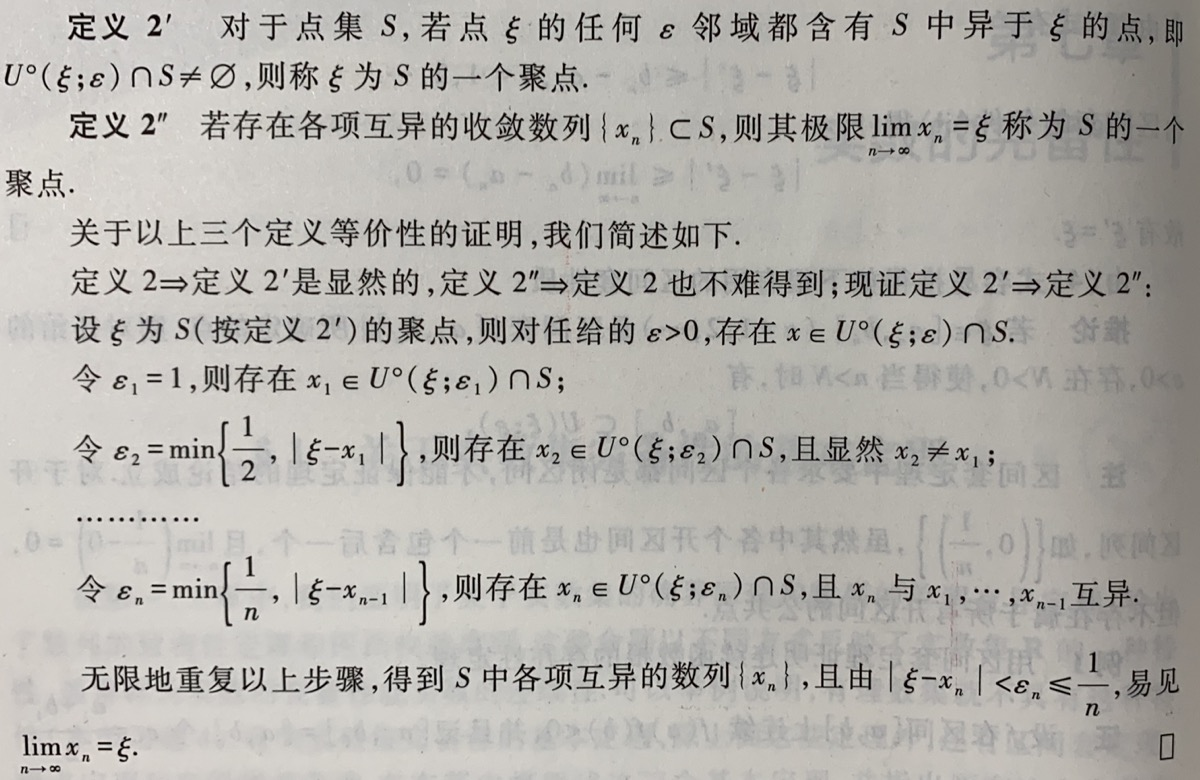 定义 2′ 对于点集 S,若点 ξ 的任何 ε 邻域都含有 S 中异于 ξ 的点,即
U°(ξ;ε)∩S≠∅,则称 ξ 为 S 的一个聚点.
定义 2″ 若存在各项互异的收敛数列{xₙ}⊂S,则其极限 lim_{n→∞} xₙ=ξ 称为 S 的一个
聚点.
关于以上三个定义等价性的证明,我们简述如下.
定义 2⇒定义 2′是显然的,定义 2″⇒定义 2 也不难得到;现证定义 2′⇒定义 2″:
设 ξ 为 S(按定义 2′)的聚点,则对任给的 ε>0,存在 x∈U°(ξ;ε)∩S.
令 ε₁=1,则存在 x₁∈U°(ξ;ε₁)∩S;
令 ε₂=min{1/2, |ξ-x₁|},则存在 x₂∈U°(ξ;ε₂)∩S,且显然 x₂≠x₁;
…………
令 εₙ=min{1/n, |ξ-xₙ₋₁|},则存在 xₙ∈U°(ξ;εₙ)∩S,且 xₙ 与 x₁,…,xₙ₋₁互异.
无限地重复以上步骤,得到 S 中各项互异的数列{xₙ},且由|ξ-xₙ|<εₙ≤1/n,易见
lim_{n→∞} xₙ=ξ. □